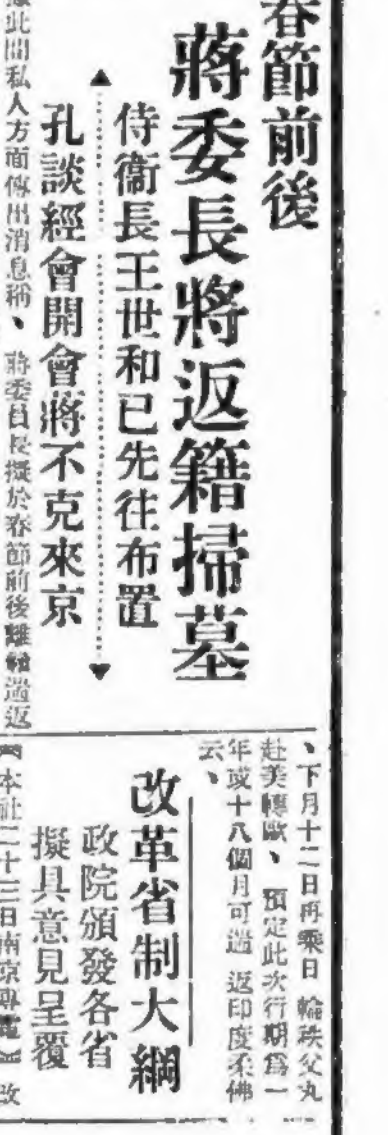 春節前後
蔣委長將返籍掃墓
侍衞長王世和已先往布置
孔談經會開會將不克來京
此間私人方面傳出消息稱、蔣委員長擬於春節前後離
返
、下月十二日再乘日輪秩父丸
赴美轉歐、預定此次行期爲一
年或十八個月可遄返印度柔佛
云、
改革省制大綱
政院頒發各省
擬具意見呈覆
本社二十三日南京專電】改